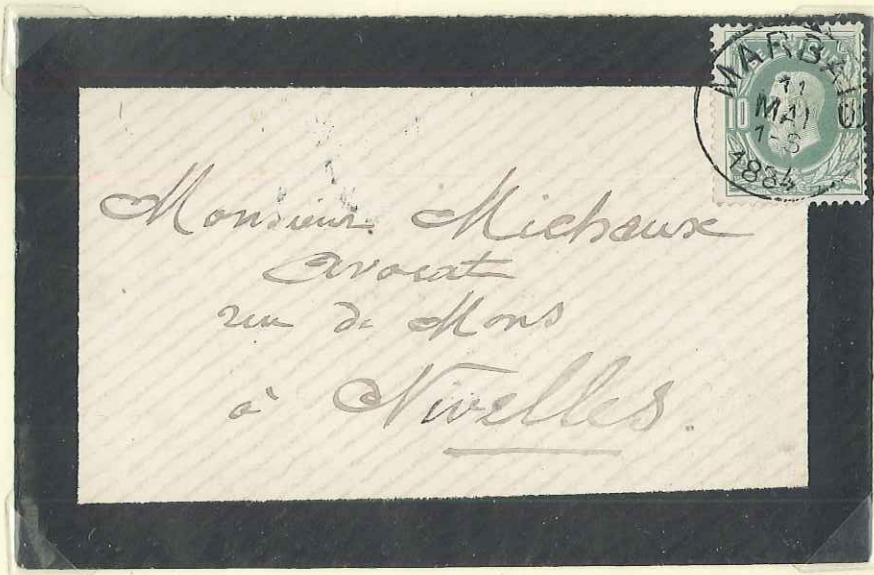 MARBAIS
11
MAI
1-S
1884
10
Monsieur Michaux
Avocat
rue de Mons
à Nivelles.